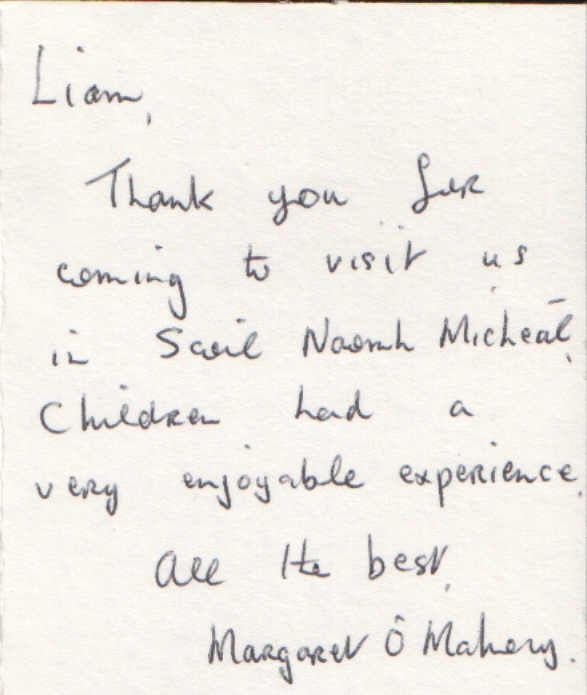 Liam,
Thank you for
coming to visit us
in Scoil Naomh Micheál,
Children had a
very enjoyable experience.
All the best,
Margaret Ó Mahony.